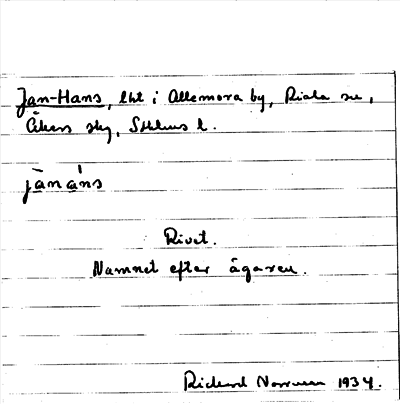 Jan-Hans, lht i Allmora by, Riala sn,
Åkers sky, Sthlms l.
jànáns
Rivet.
Namnet efter ägaren.
Richard 1934.